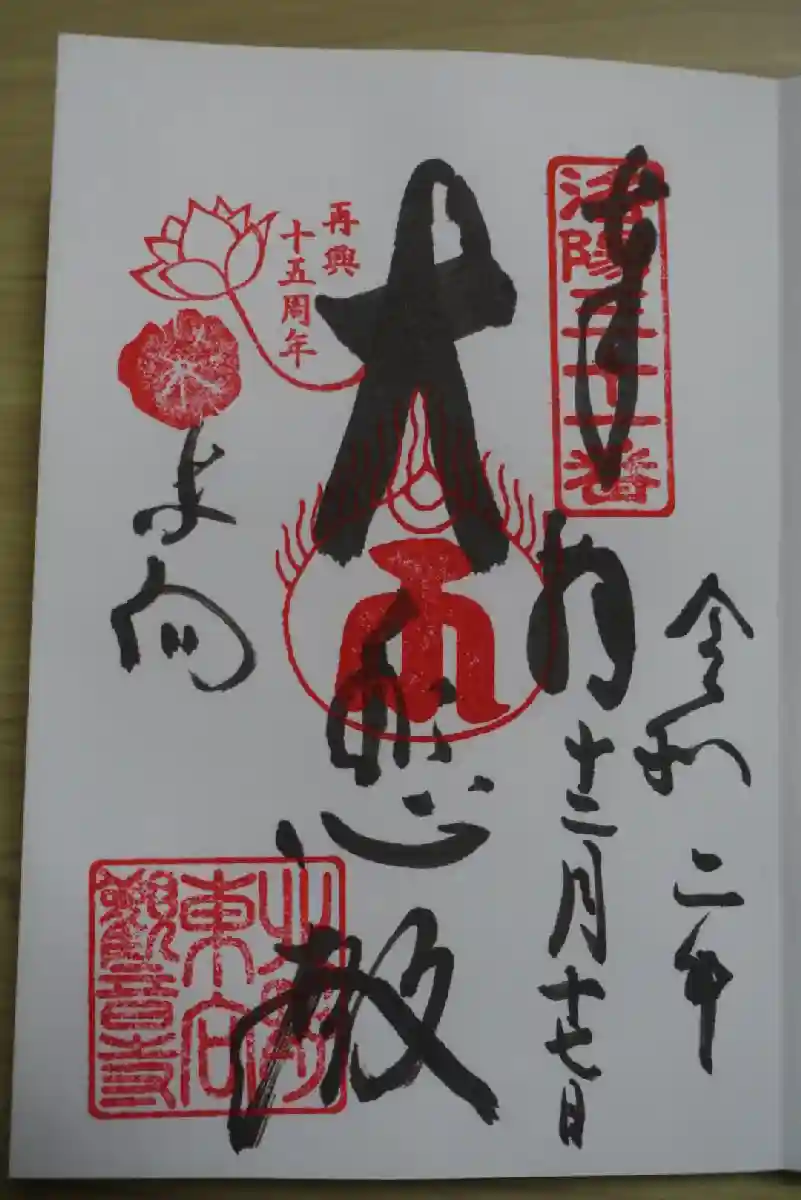 洛陽三十一番
奉拝
令和二年
十二月十七日
大悲殿
再興
十五周年
東向
東向
觀音寺